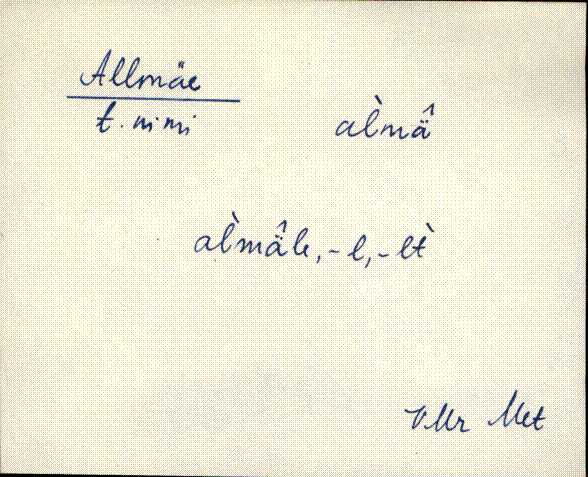 Allmäe
t. nimi
al̀mä̂
al̀mä̂le, -l, -lt̀
VMr Met